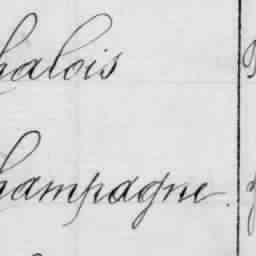 halois
hampagne.